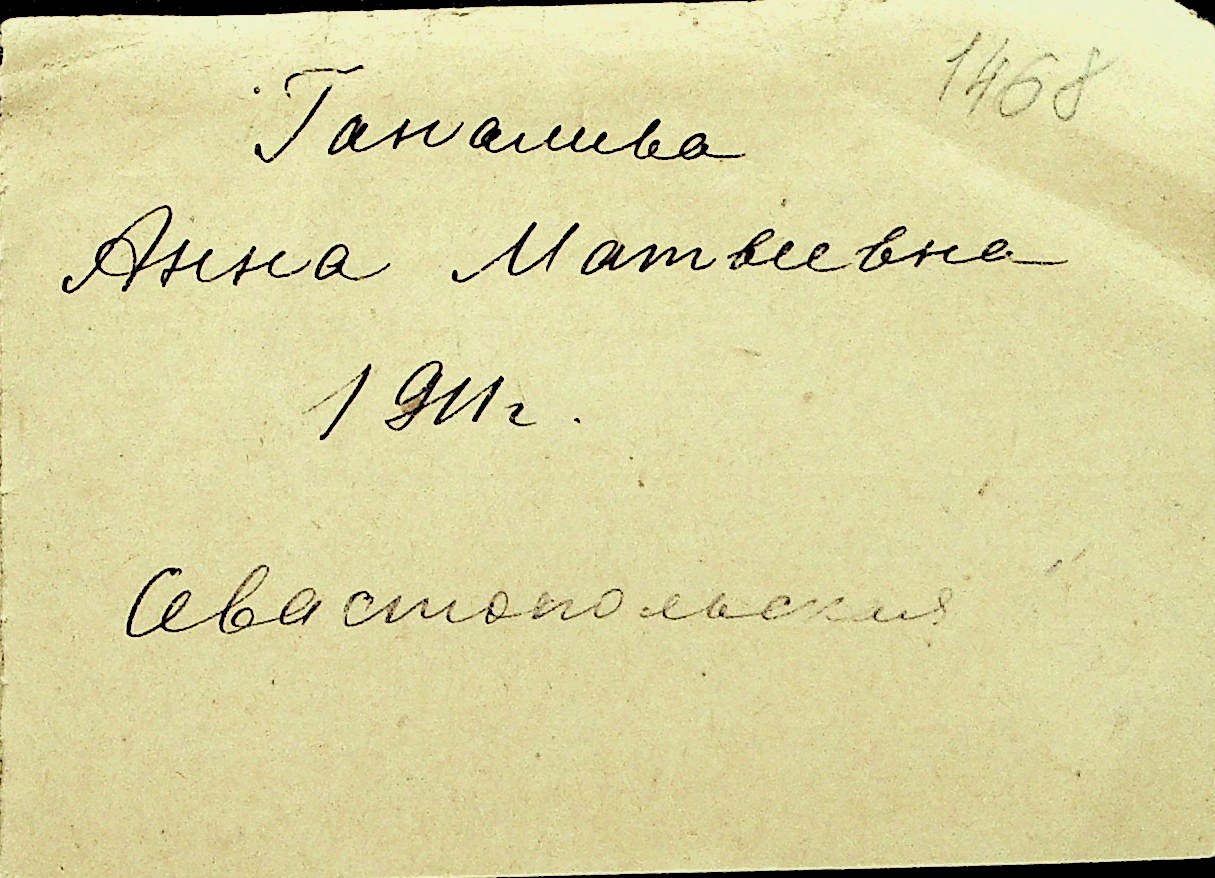 1468
Ганалива
Анна Матвеевна
1911г.
Севастопольския